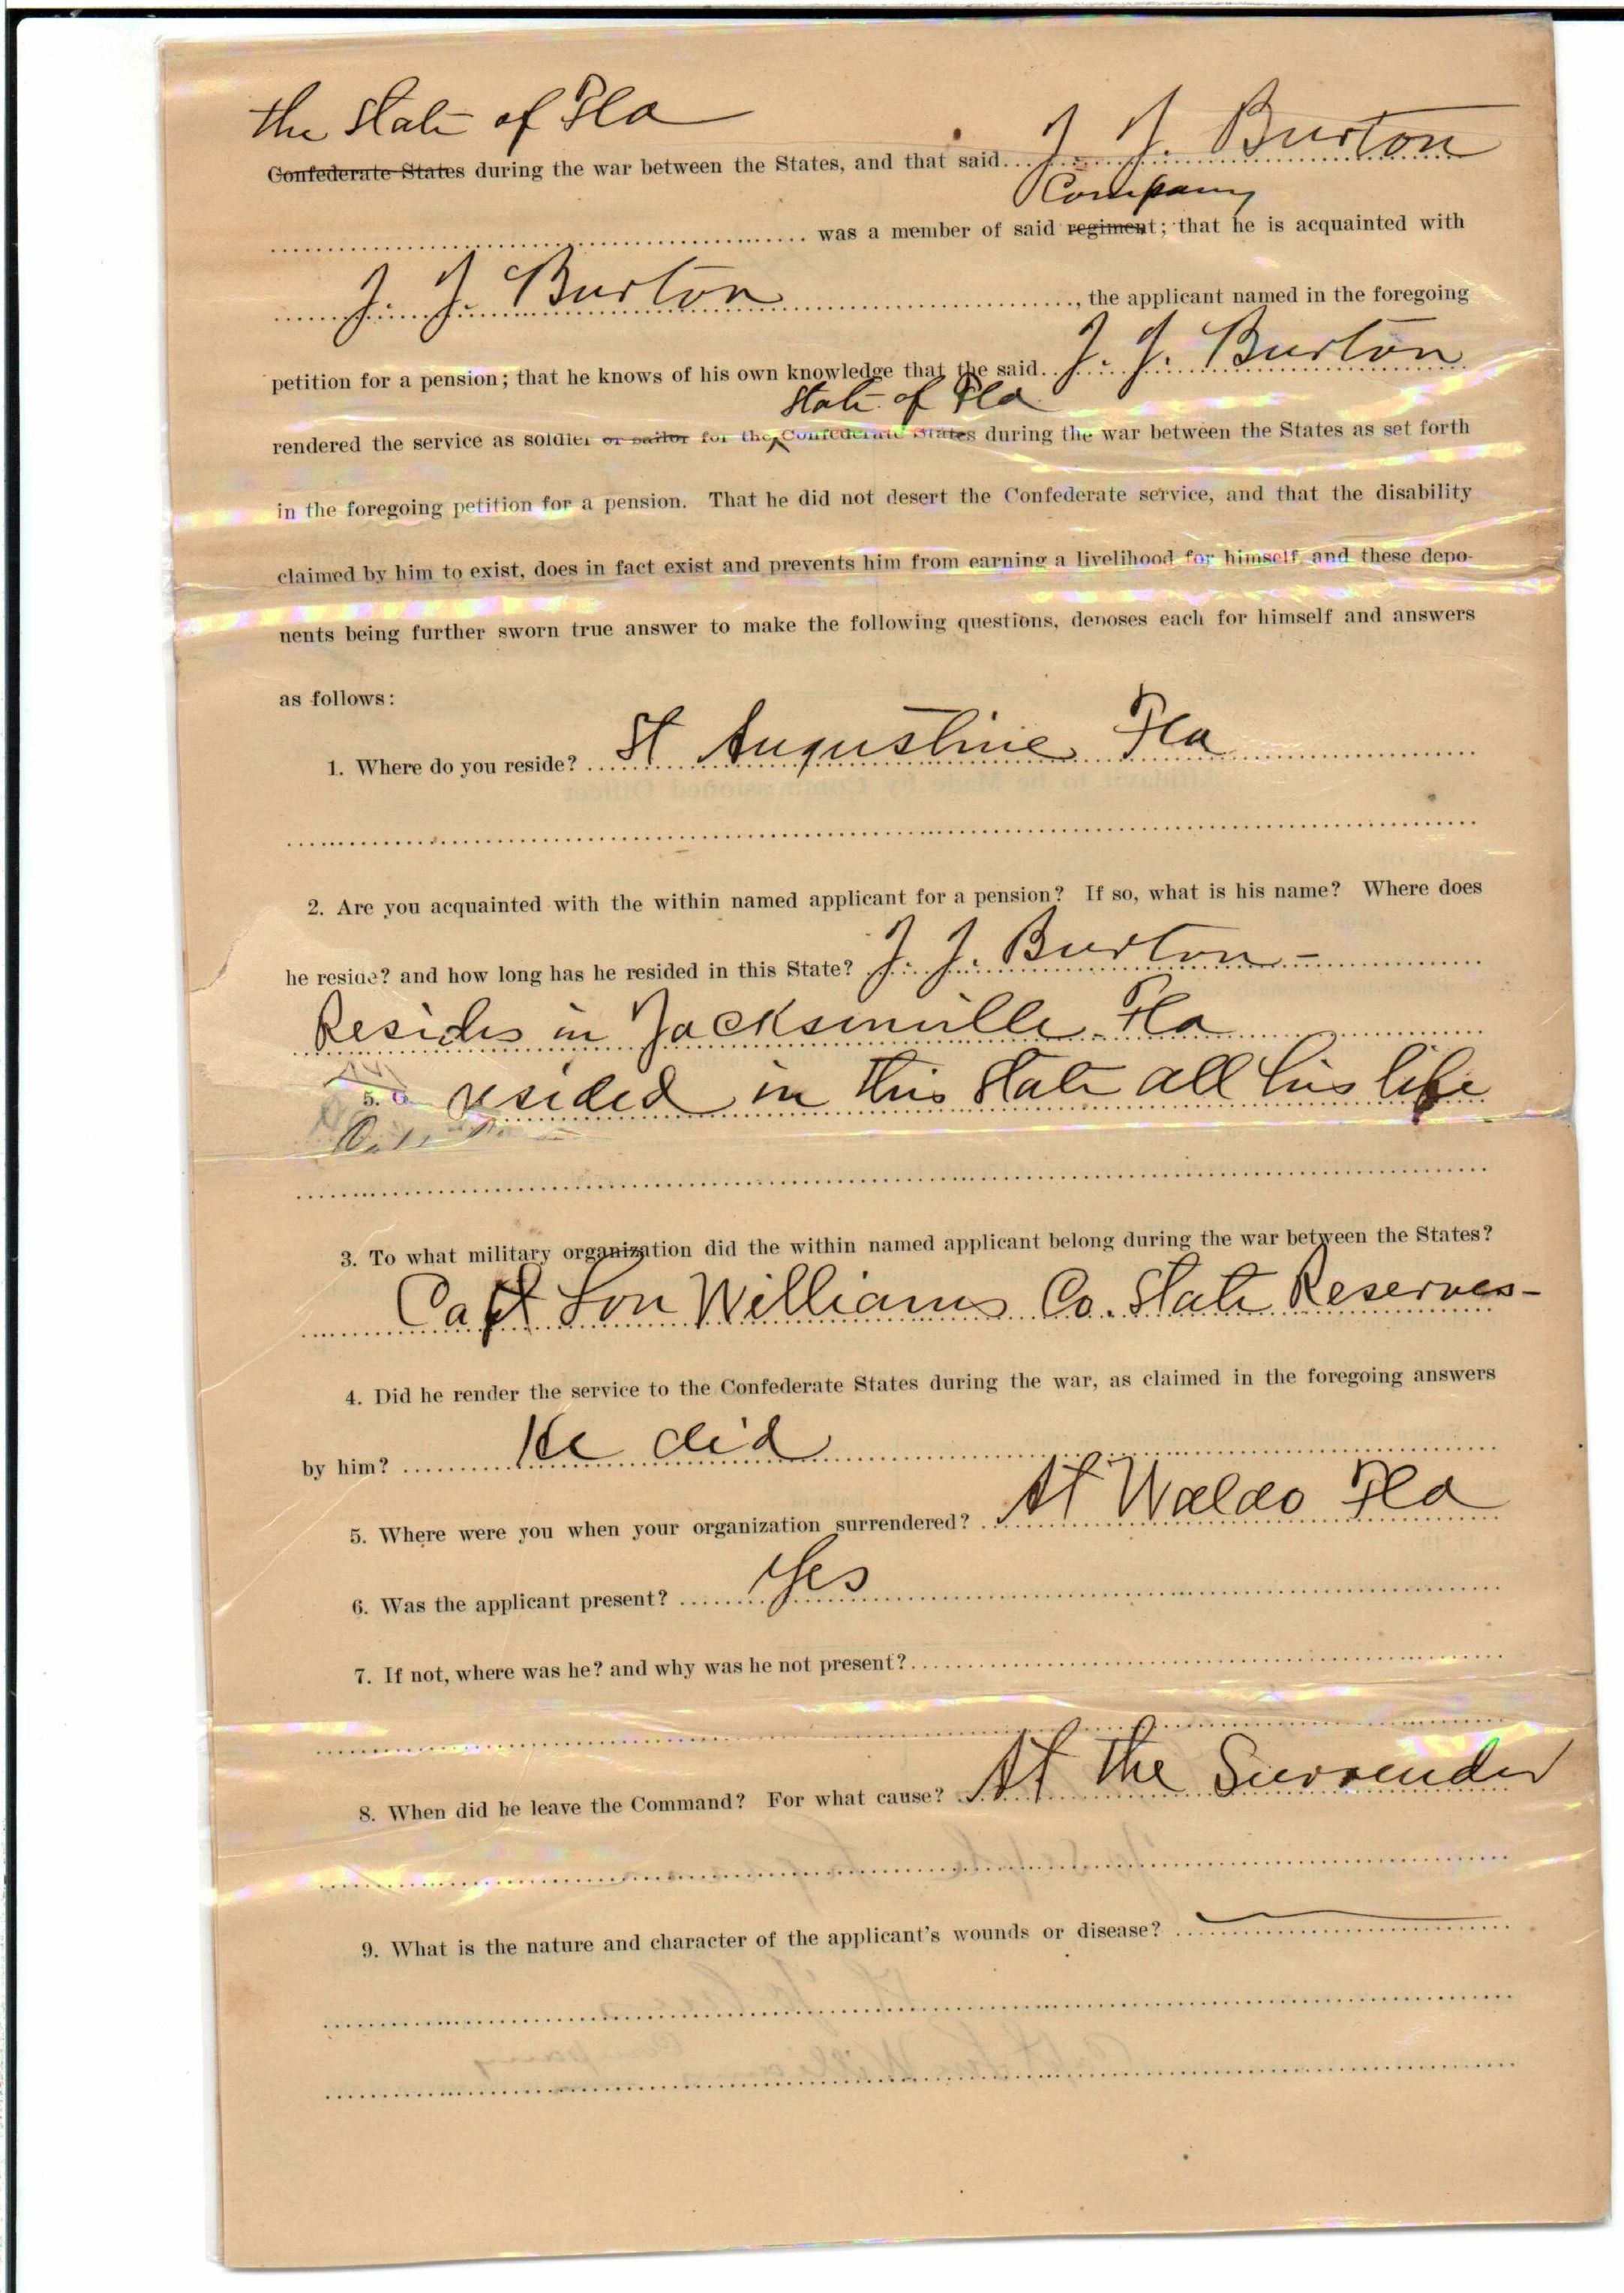 the State of Fla
Confederate States during the war between the States, and that said J. J. Burton
Company
was a member of said regiment; that he is acquainted with
J. J. Burton, the applicant named in the foregoing
petition for a pension; that he knows of his own knowledge that the said J. J. Burton
State of Fla
rendered the service as soldier or sailor for the Confederate States during the war between the States as set forth
in the foregoing petition for a pension. That he did not desert the Confederate service, and that the disability
claimed by him to exist, does in fact exist and prevents him from earning a livelihood for himself, and these depo-
nents being further sworn true answer to make the following questions, deposes each for himself and answers
as follows:
1. Where do you reside? St Augustine Fla
2. Are you acquainted with the within named applicant for a pension? If so, what is his name? Where does
he reside? and how long has he resided in this State? J. J. Burton -
Resides in Jacksonville Fla
resided in this State all his life
3. To what military organization did the within named applicant belong during the war between the States?
Capt Lon Williams Co. State Reserves -
4. Did he render the service to the Confederate States during the war, as claimed in the foregoing answers
by him? He did
5. Where were you when your organization surrendered? At Waldo Fla
6. Was the applicant present? Yes
7. If not, where was he? and why was he not present?
8. When did he leave the Command? For what cause? At the Surrender
9. What is the nature and character of the applicant's wounds or disease?